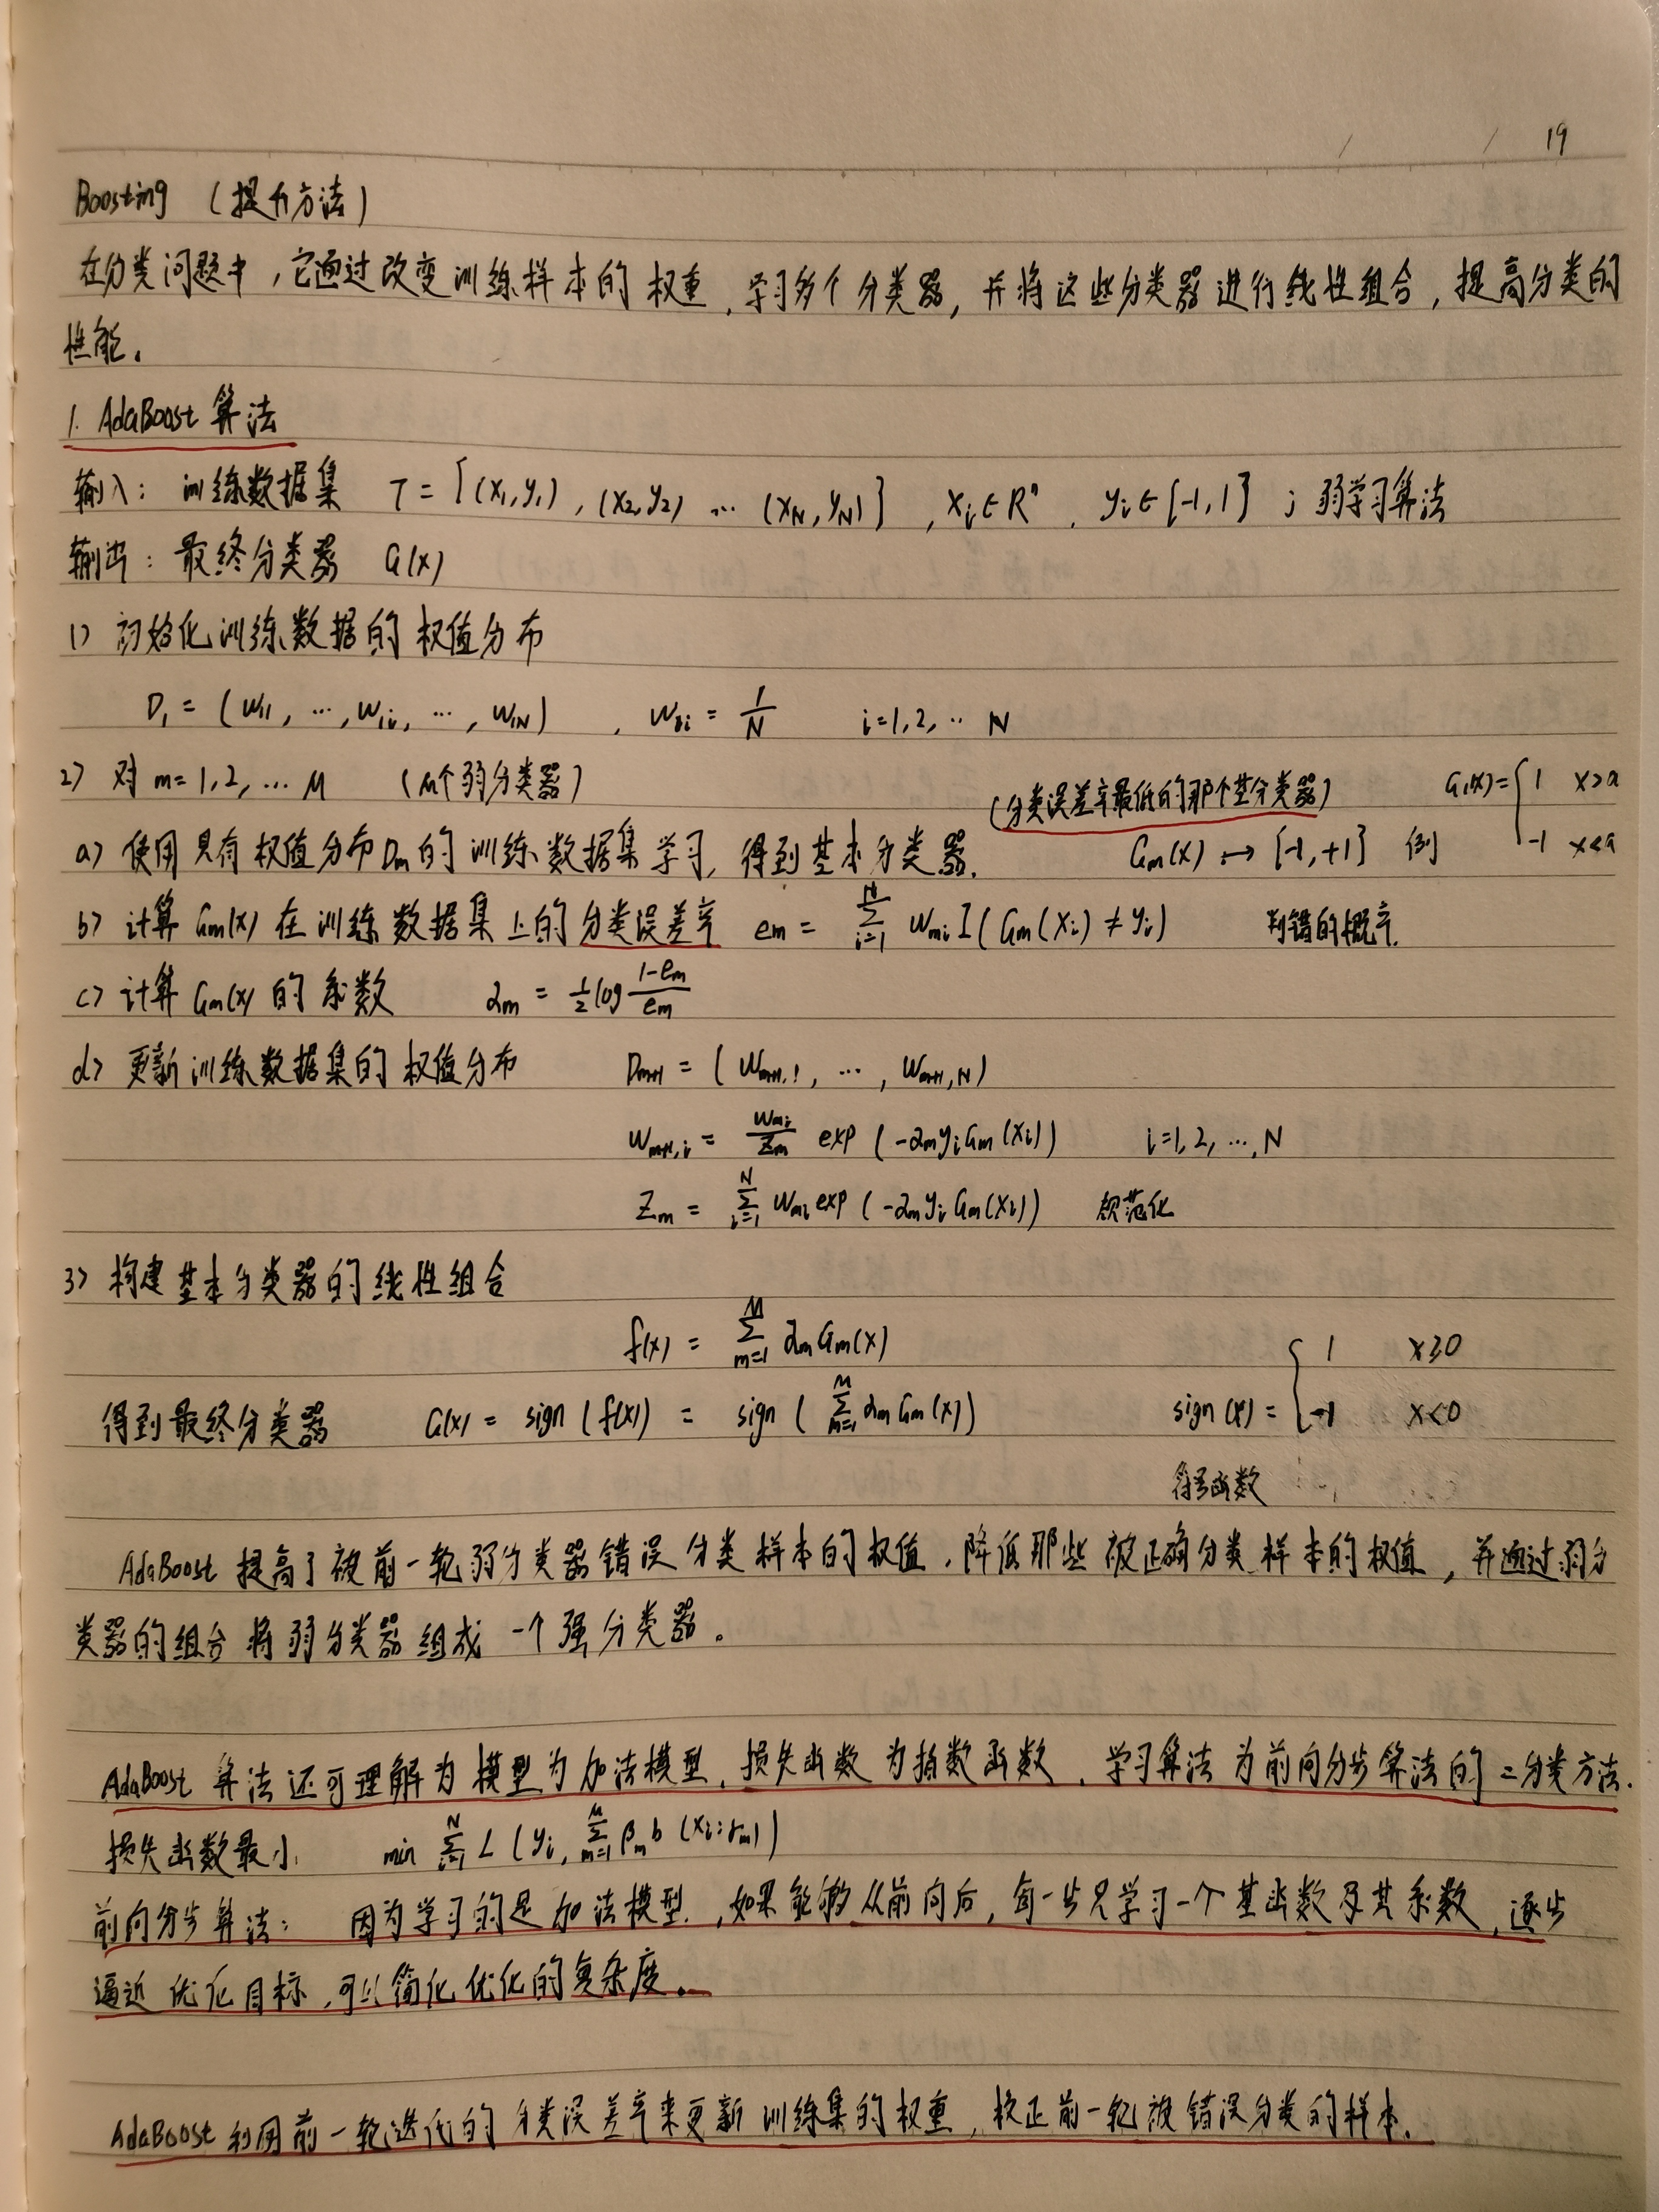 19
Boosting (提升方法)
在分类问题中，它通过改变训练样本的权重，学习多个分类器，并将这些分类器进行线性组合，提高分类的
性能。
1. AdaBoost 算法
输入： 训练数据集 T = {(x₁,y₁), (x₂,y₂) … (x_N,y_N)}, xᵢ∈Rⁿ, yᵢ∈{-1,1} ; 弱学习算法
输出： 最终分类器 G(x)
1) 初始化训练数据的权值分布
D₁ = (w₁₁, …, w₁ᵢ, …, w₁N) , w₁ᵢ = 1/N i=1,2,… N
2) 对 m=1,2,… M (M个弱分类器)
(分类误差率最低的那个基分类器) G(x)= { 1 x>a
a) 使用具有权值分布Dm的训练数据集学习, 得到基本分类器. Gm(x) ↦ {-1,+1} 例 -1 x<a
b) 计算 Gm(x) 在训练数据集上的分类误差率 em = Σ_{i=1}^{N} wmi I(Gm(xi) ≠ yi) 判错的概率.
c) 计算 Gm(x) 的系数 αm = 1/2 log (1-em)/em
d) 更新训练数据集的权值分布 Dm+1 = (wm+1,1, …, wm+1,N)
wm+1,i = wmi/Zm exp (-αm yi Gm(xi)) i=1,2,…,N
Zm = Σ_{i=1}^{N} wmi exp (-αm yi Gm(xi)) 规范化
3) 构建基本分类器的线性组合
f(x) = Σ_{m=1}^{M} αm Gm(x)
得到最终分类器 G(x) = sign (f(x)) = sign (Σ_{m=1}^{M} αm Gm(x)) sign(x) = { 1 x≥0
-1 x<0
符号函数
AdaBoost 提高了被前一轮弱分类器错误分类样本的权值，降低那些被正确分类样本的权值，并通过弱分
类器的组合将弱分类器组成一个强分类器。
AdaBoost 算法还可理解为模型为加法模型，损失函数为指数函数，学习算法为前向分步算法的二分类方法.
损失函数最小 min Σ_{i=1}^{N} L (yi, Σ_{m=1}^{M} βm b (xi; γm))
前向分步算法： 因为学习的是加法模型，如果能够从前向后，每一步只学习一个基函数及其系数，逐步
逼近优化目标，可以简化优化的复杂度。
AdaBoost 利用前一轮迭代的分类误差率来更新训练集的权重，校正前一轮被错误分类的样本.